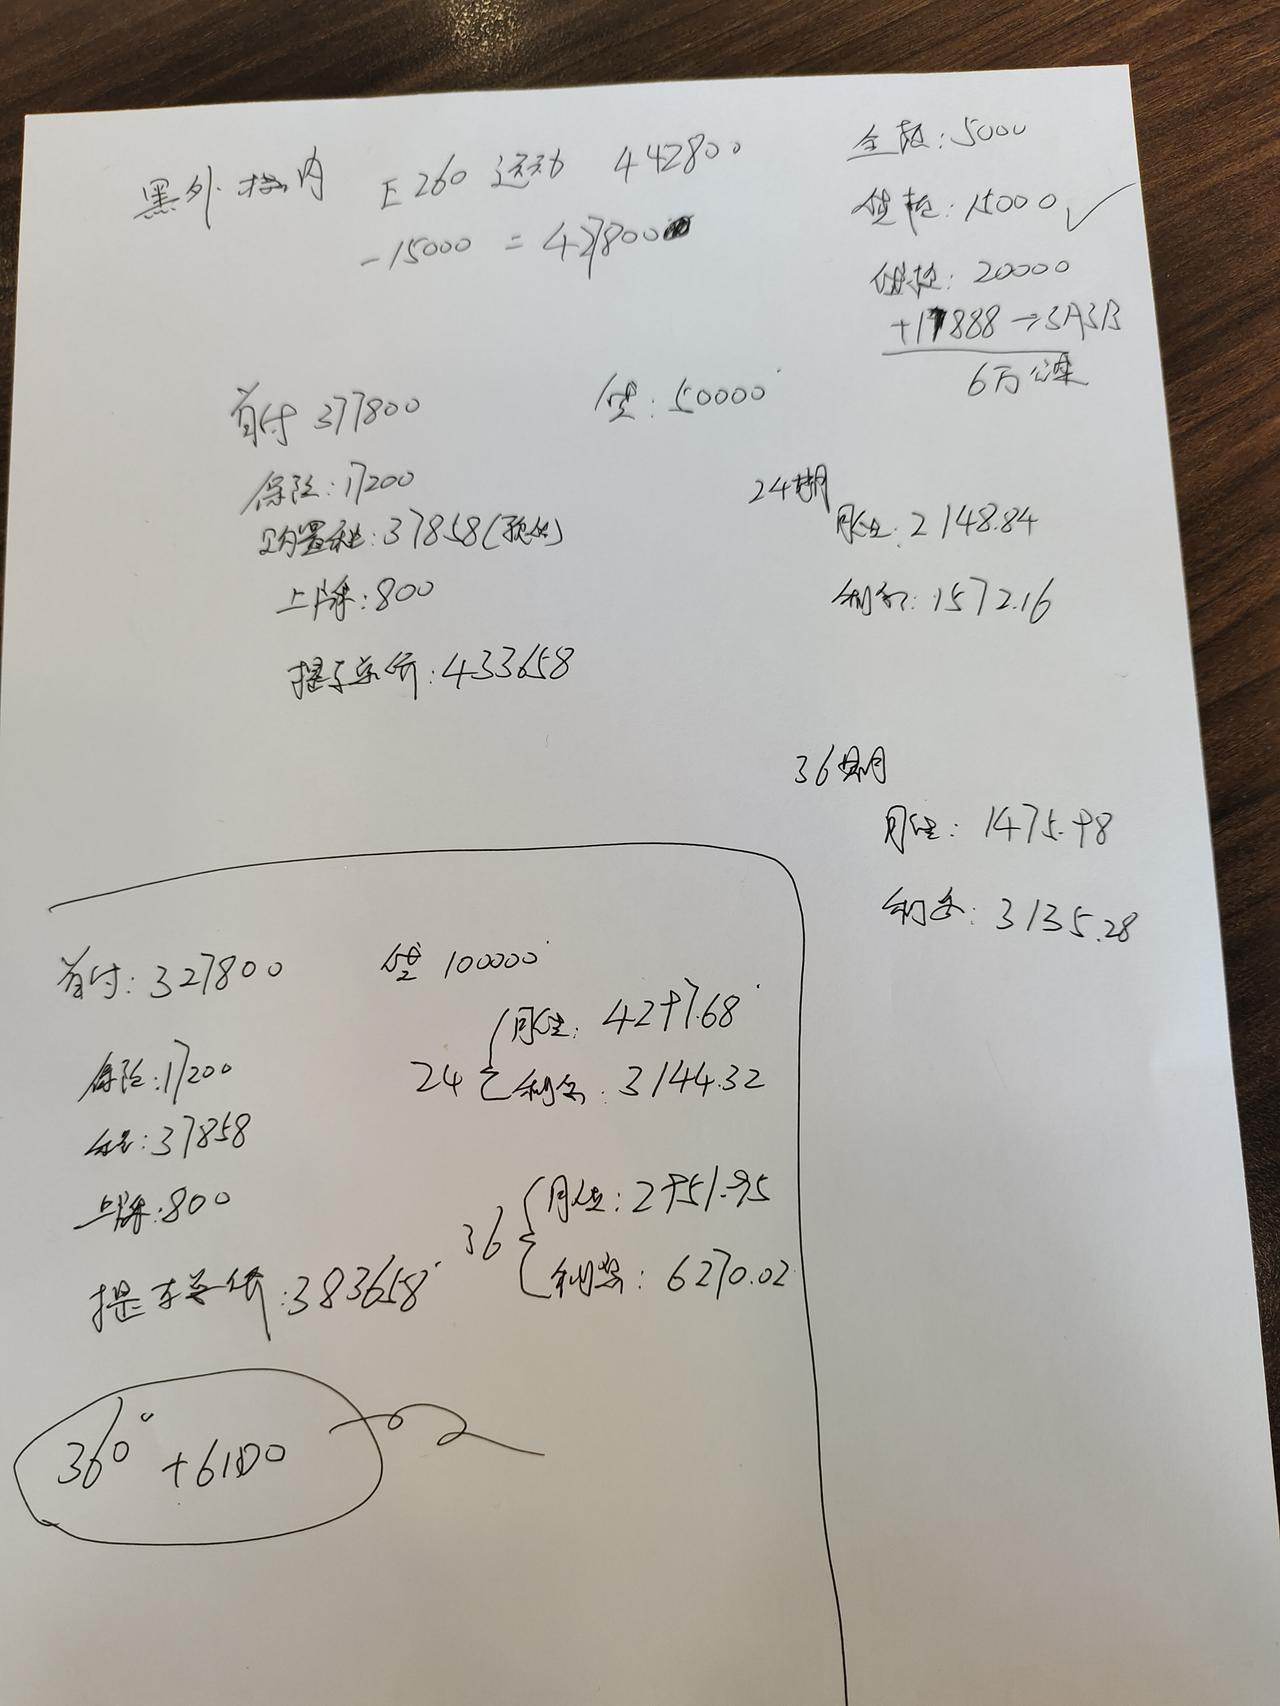 黑外棕内 E260 运动 442800
-15000 = 427800
全款:5000
贷款:15000 ✓
贷款:20000
+17888→3A3B
6万公里
首付 377800 贷:50000
保险:17200
购置税:37858(预估)
上牌:800
提车总价:433658
24期
月供:2148.84
利息:1572.16
36期
月供:1475.98
利息:3135.28
首付:327800 贷 100000
保险:17200
税:37858
上牌:800
提车总价:383658
24
月供:4297.68
利息:3144.32
36
月供:2951.95
利息:6270.02
360° +6100